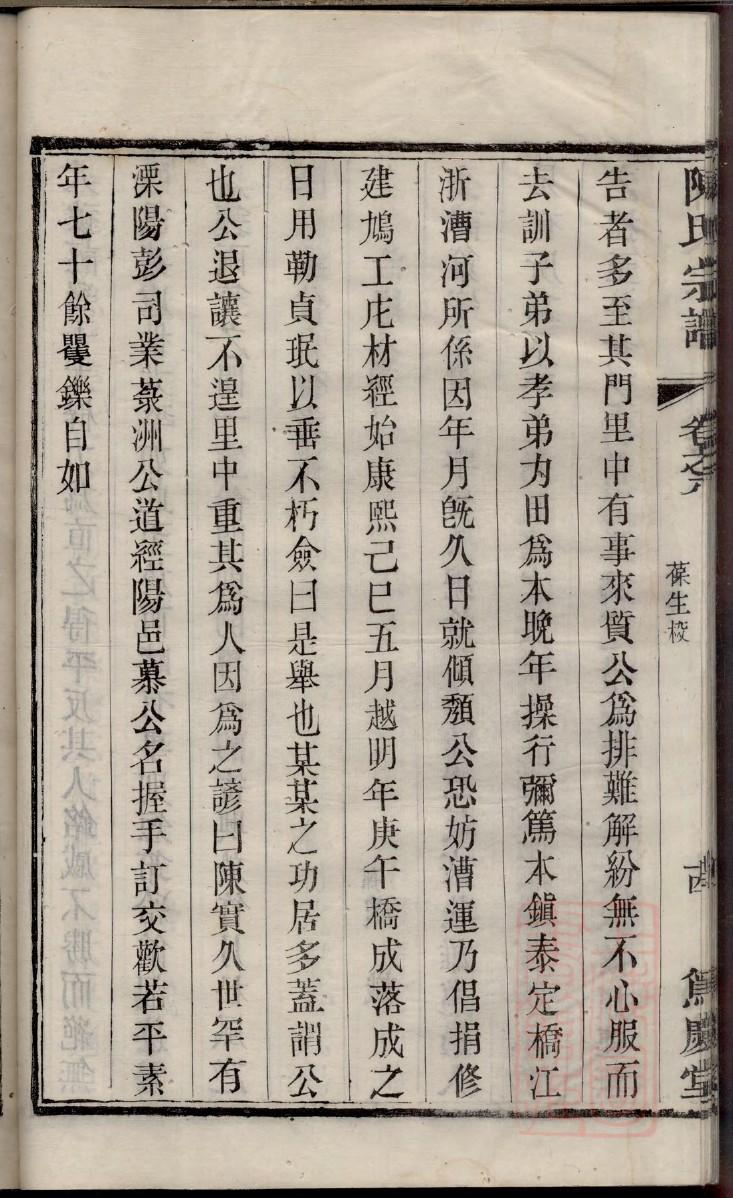 陳氏宗譜
卷之六
葆生校
篤慶堂
告者多至其門里中有事來質公爲排難解紛無不心服而
去訓子弟以孝弟力田爲本晚年操行彌篤本鎭泰定橋江
浙漕河所係因年月旣久日就傾頽公恐妨漕運乃倡捐修
建鳩工庀材經始康熙己巳五月越明年庚午橋成落成之
日用勒貞珉以垂不朽僉曰是舉也某某之功居多蓋謂公
也公退讓不遑里中重其爲人因爲之諺曰陳實久世罕有
溧陽彭司業菉洲公道經陽邑慕公名握手訂交歡若平素
年七十餘矍鑠自如